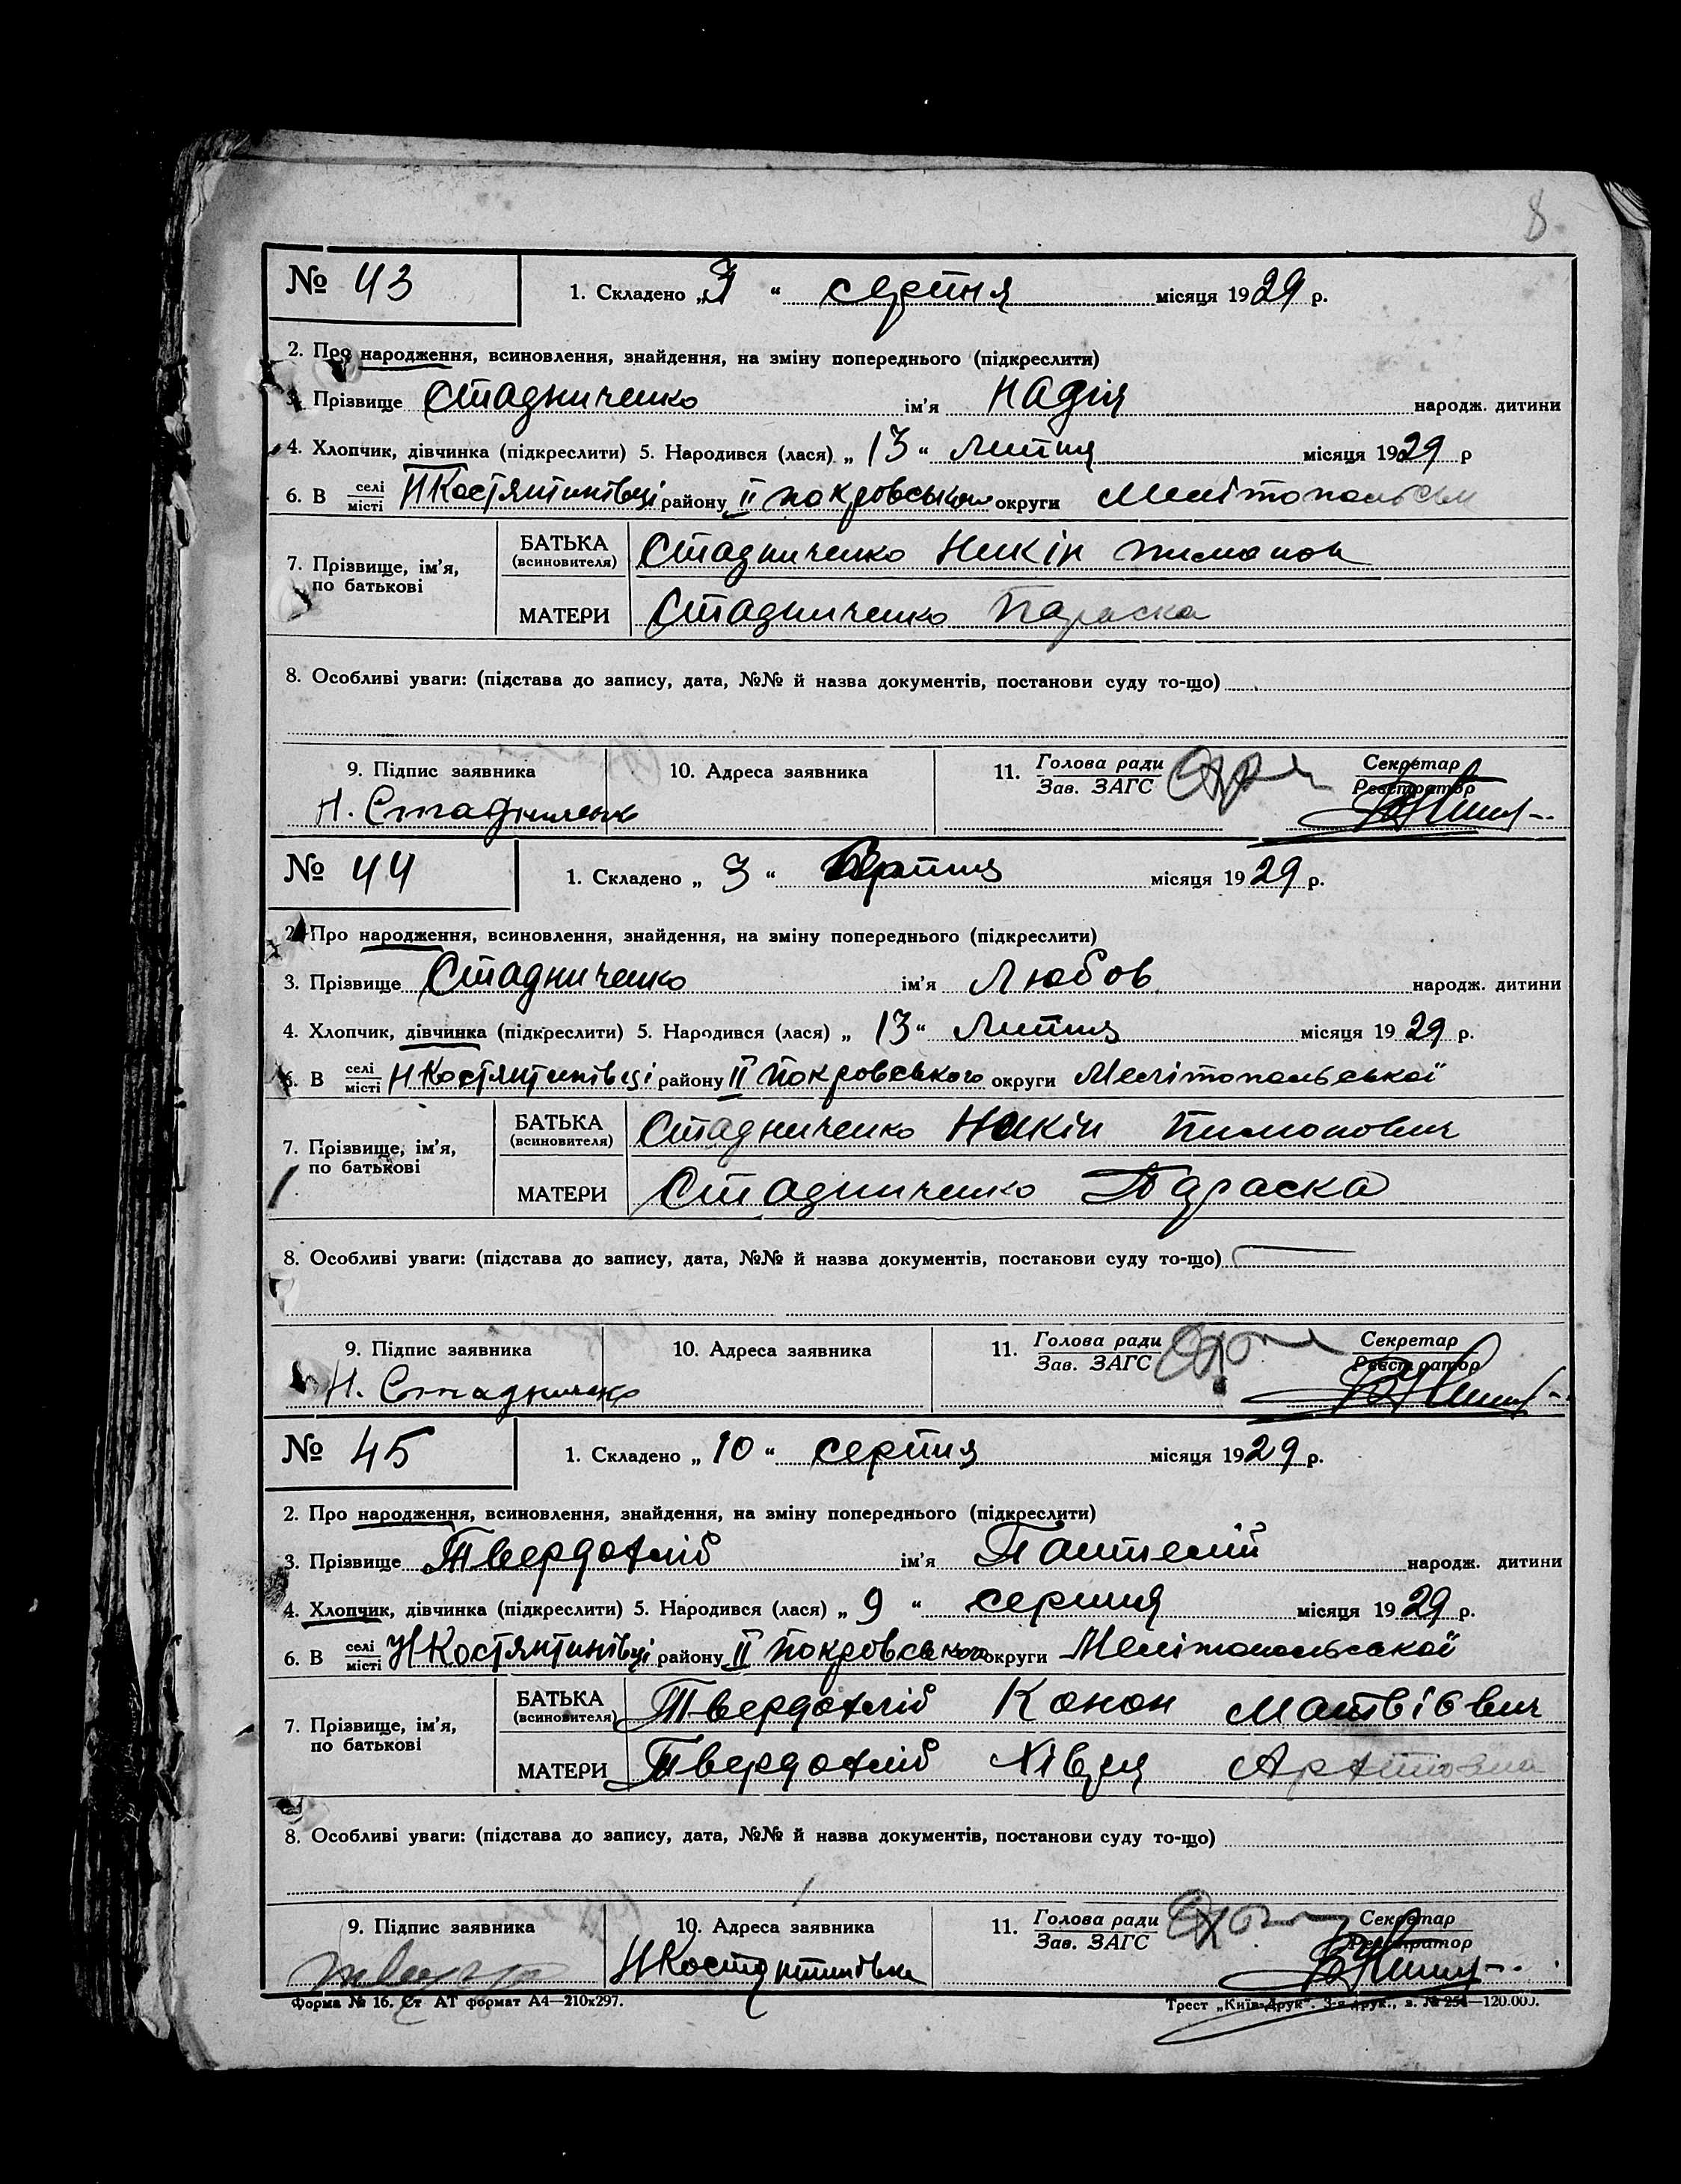 8
№ 43
1. Складено „3“ серпня місяця 1929 р.
2. Про народження, всиновлення, знайдення, на зміну попереднього (підкреслити)
3. Прізвище Стадниченко ім'я Надія народж. дитини
4. Хлопчик, дівчинка (підкреслити) 5. Народився (лася) „13“ Липня місяця 1929 р
6. В селі місті НКостянтинівці району ІІ Покровського округи Мелітопольськ
7. Прізвище, ім'я, по батькові
БАТЬКА (всиновителя) Стадниченко Никін Пимонов
МАТЕРИ Стадниченко Параска
8. Особливі уваги: (підстава до запису, дата, №№ й назва документів, постанови суду то-що)
9. Підпис заявника 10. Адреса заявника 11. Голова ради Зав. ЗАГС Секретар Реєстратор
Н. Стадниченко
№ 44
1. Складено „3“ Серпня місяця 1929 р.
2. Про народження, всиновлення, знайдення, на зміну попереднього (підкреслити)
3. Прізвище Стадниченко ім'я Любов народж. дитини
4. Хлопчик, дівчинка (підкреслити) 5. Народився (лася) „13“ Липня місяця 1929 р.
6. В селі місті НКостянтинівці району ІІ Покровського округи Мелітопольської
7. Прізвище, ім'я, по батькові
БАТЬКА (всиновителя) Стадниченко Никін Пимонович
МАТЕРИ Стадниченко Параска
8. Особливі уваги: (підстава до запису, дата, №№ й назва документів, постанови суду то-що)
9. Підпис заявника 10. Адреса заявника 11. Голова ради Зав. ЗАГС Секретар Реєстратор
Н. Стадниченко
№ 45
1. Складено „10“ серпня місяця 1929 р.
2. Про народження, всиновлення, знайдення, на зміну попереднього (підкреслити)
3. Прізвище Твердохліб ім'я Пантелій народж. дитини
4. Хлопчик, дівчинка (підкреслити) 5. Народився (лася) „9“ серпня місяця 1929 р.
6. В селі місті НКостянтинівці району ІІ Покровського округи Мелітопольської
7. Прізвище, ім'я, по батькові
БАТЬКА (всиновителя) Твердохліб Конон Матвіович
МАТЕРИ Твердохліб Хівря
8. Особливі уваги: (підстава до запису, дата, №№ й назва документів, постанови суду то-що)
9. Підпис заявника 10. Адреса заявника 11. Голова ради Зав. ЗАГС Секретар Реєстратор
НКостянтинівка
Форма № 16. Ст АТ формат А4—210х297. Трест „Київ-Друк“. 3-я друк., з. № 254—120.000.